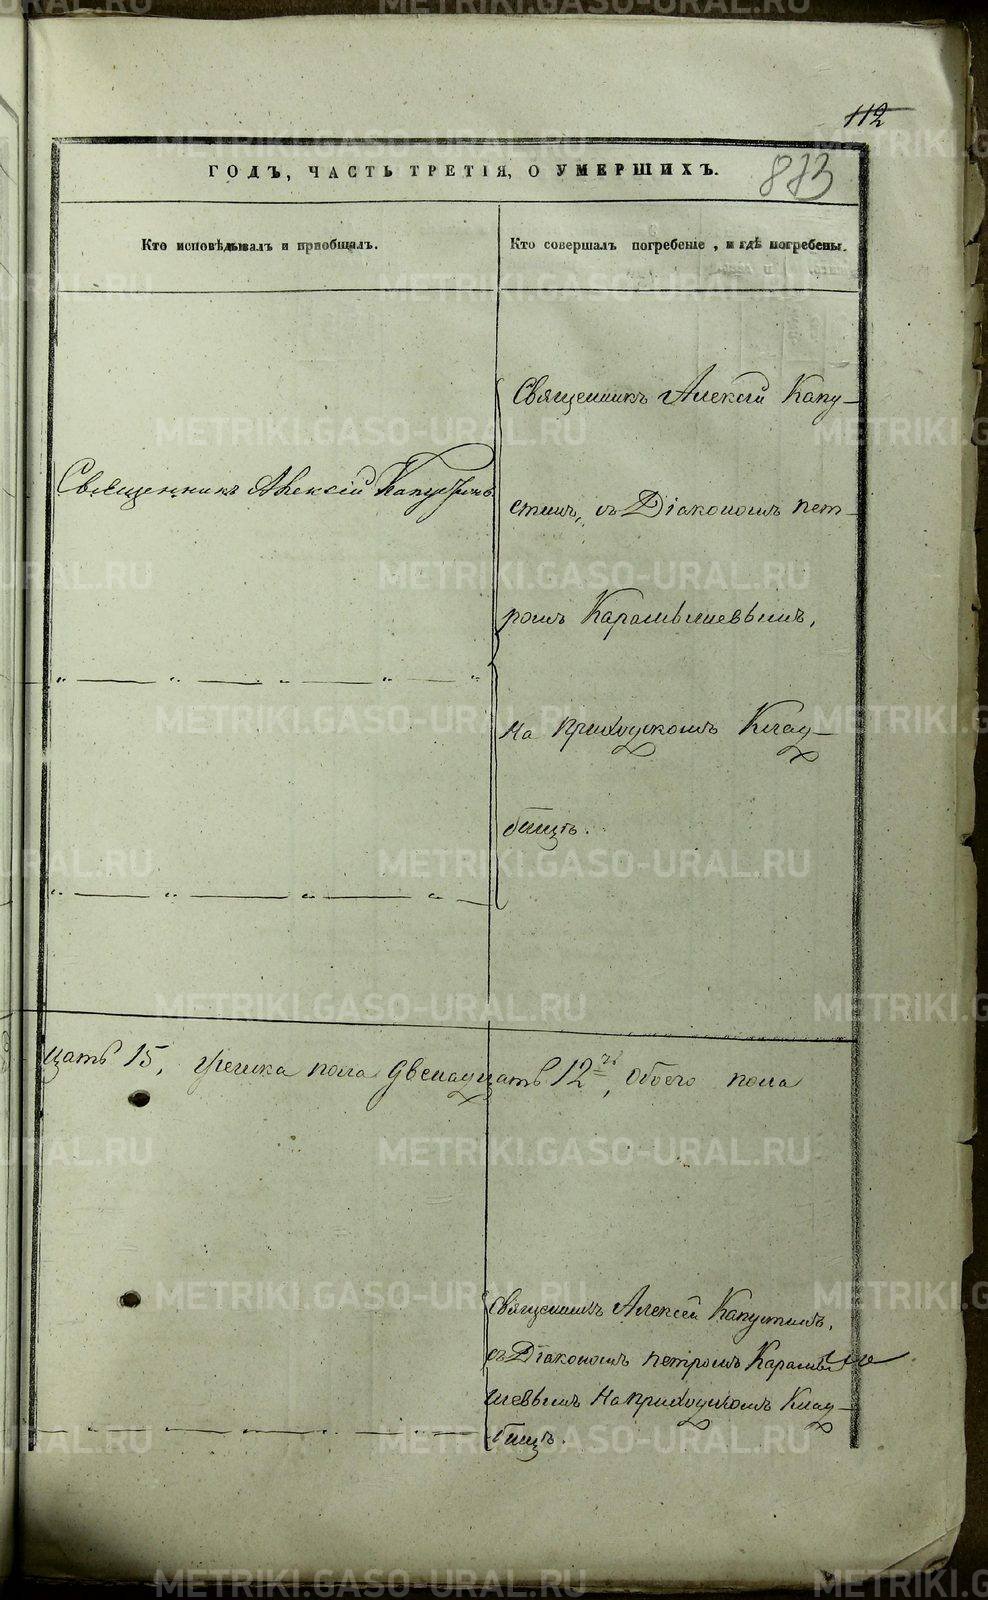 112
ГОДЪ, ЧАСТЬ ТРЕТІЯ, О УМЕРШИХЪ.
873
Кто исповѣдывалъ и пріобщалъ.
Кто совершалъ погребеніе, и гдѣ погребены.
Священникъ Алексій Капустинъ
Священникъ Алексій Капу-
стинъ, съ Діакономъ Пет-
ромъ Карамышевымъ,
на приходскомъ Клад-
бищѣ.
цать 15, женска пола двенадцать 12ть, обоего пола
Священникъ Алексій Капустинъ,
съ Діакономъ Петромъ Карамы-
шевымъ на приходскомъ Клад-
бищѣ.
METRIKI.GASO-URAL.RU